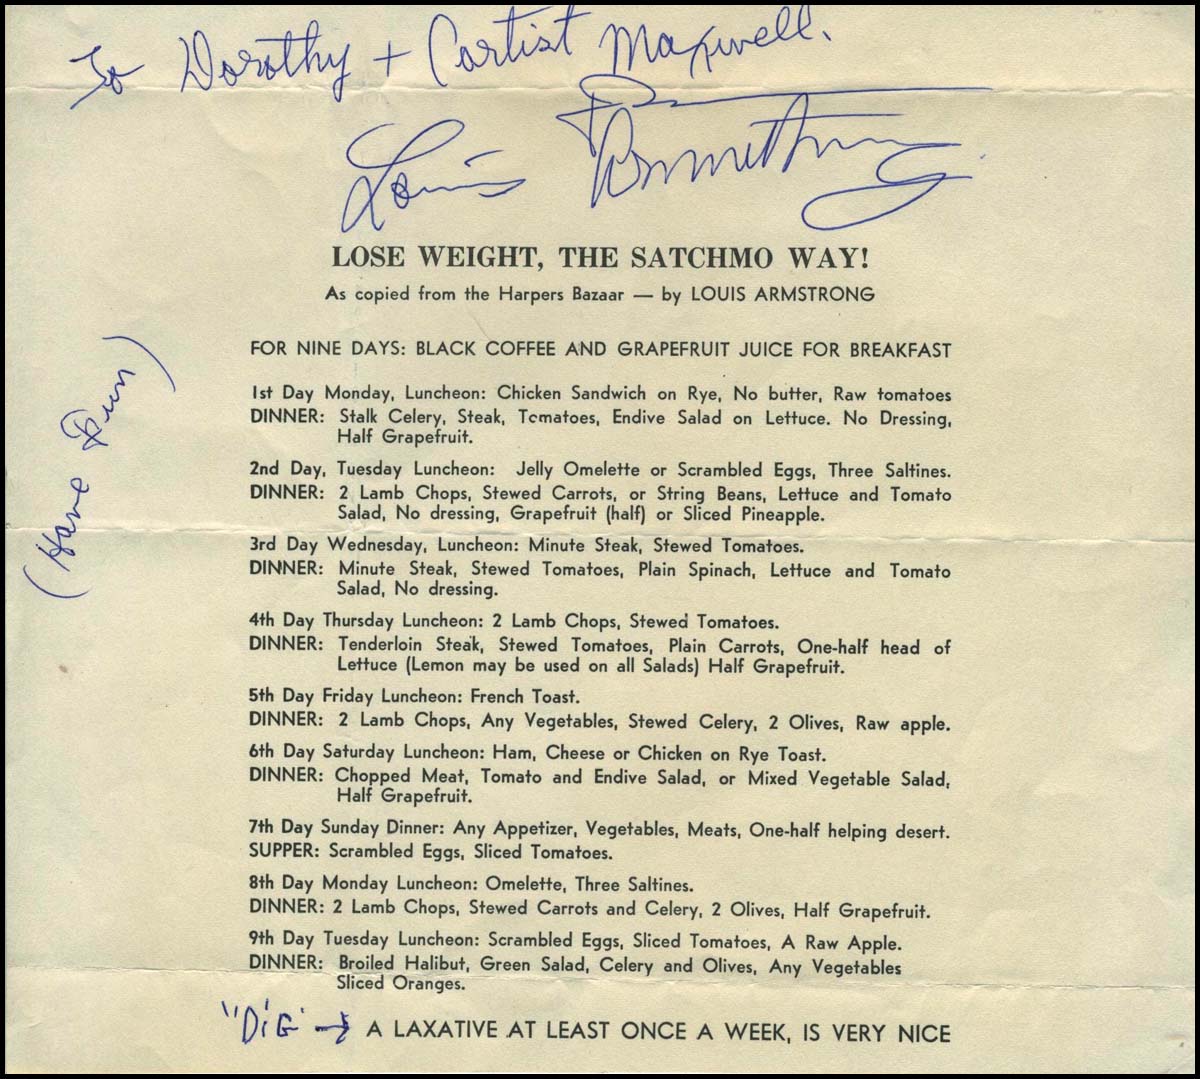 To Dorothy + Cartist Maxwell.
Louis Armstrong
LOSE WEIGHT, THE SATCHMO WAY!
As copied from the Harpers Bazaar — by LOUIS ARMSTRONG
FOR NINE DAYS: BLACK COFFEE AND GRAPEFRUIT JUICE FOR BREAKFAST
(Have Fun)
1st Day Monday, Luncheon: Chicken Sandwich on Rye, No butter, Raw tomatoes
DINNER: Stalk Celery, Steak, Tomatoes, Endive Salad on Lettuce. No Dressing,
Half Grapefruit.
2nd Day, Tuesday Luncheon: Jelly Omelette or Scrambled Eggs, Three Saltines.
DINNER: 2 Lamb Chops, Stewed Carrots, or String Beans, Lettuce and Tomato
Salad, No dressing, Grapefruit (half) or Sliced Pineapple.
3rd Day Wednesday, Luncheon: Minute Steak, Stewed Tomatoes.
DINNER: Minute Steak, Stewed Tomatoes, Plain Spinach, Lettuce and Tomato
Salad, No dressing.
4th Day Thursday Luncheon: 2 Lamb Chops, Stewed Tomatoes.
DINNER: Tenderloin Steak, Stewed Tomatoes, Plain Carrots, One-half head of
Lettuce (Lemon may be used on all Salads) Half Grapefruit.
5th Day Friday Luncheon: French Toast.
DINNER: 2 Lamb Chops, Any Vegetables, Stewed Celery, 2 Olives, Raw apple.
6th Day Saturday Luncheon: Ham, Cheese or Chicken on Rye Toast.
DINNER: Chopped Meat, Tomato and Endive Salad, or Mixed Vegetable Salad,
Half Grapefruit.
7th Day Sunday Dinner: Any Appetizer, Vegetables, Meats, One-half helping desert.
SUPPER: Scrambled Eggs, Sliced Tomatoes.
8th Day Monday Luncheon: Omelette, Three Saltines.
DINNER: 2 Lamb Chops, Stewed Carrots and Celery, 2 Olives, Half Grapefruit.
9th Day Tuesday Luncheon: Scrambled Eggs, Sliced Tomatoes, A Raw Apple.
DINNER: Broiled Halibut, Green Salad, Celery and Olives, Any Vegetables
Sliced Oranges.
"DiG" → A LAXATIVE AT LEAST ONCE A WEEK, IS VERY NICE